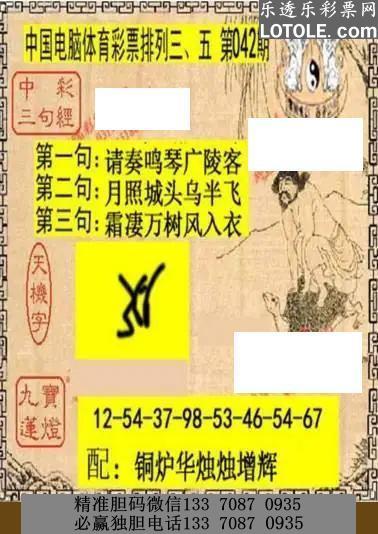 乐透乐彩票网
LOTOLE.COM
中国电脑体育彩票排列三、五 第042期
中彩
三句經
第一句:请奏鸣琴广陵客
第二句:月照城头乌半飞
第三句:霜凄万树风入衣
天機字
九寶
蓮燈
12-54-37-98-53-46-54-67
配:铜炉华烛烛增辉
精准胆码微信133 7087 0935
必赢独胆电话133 7087 0935